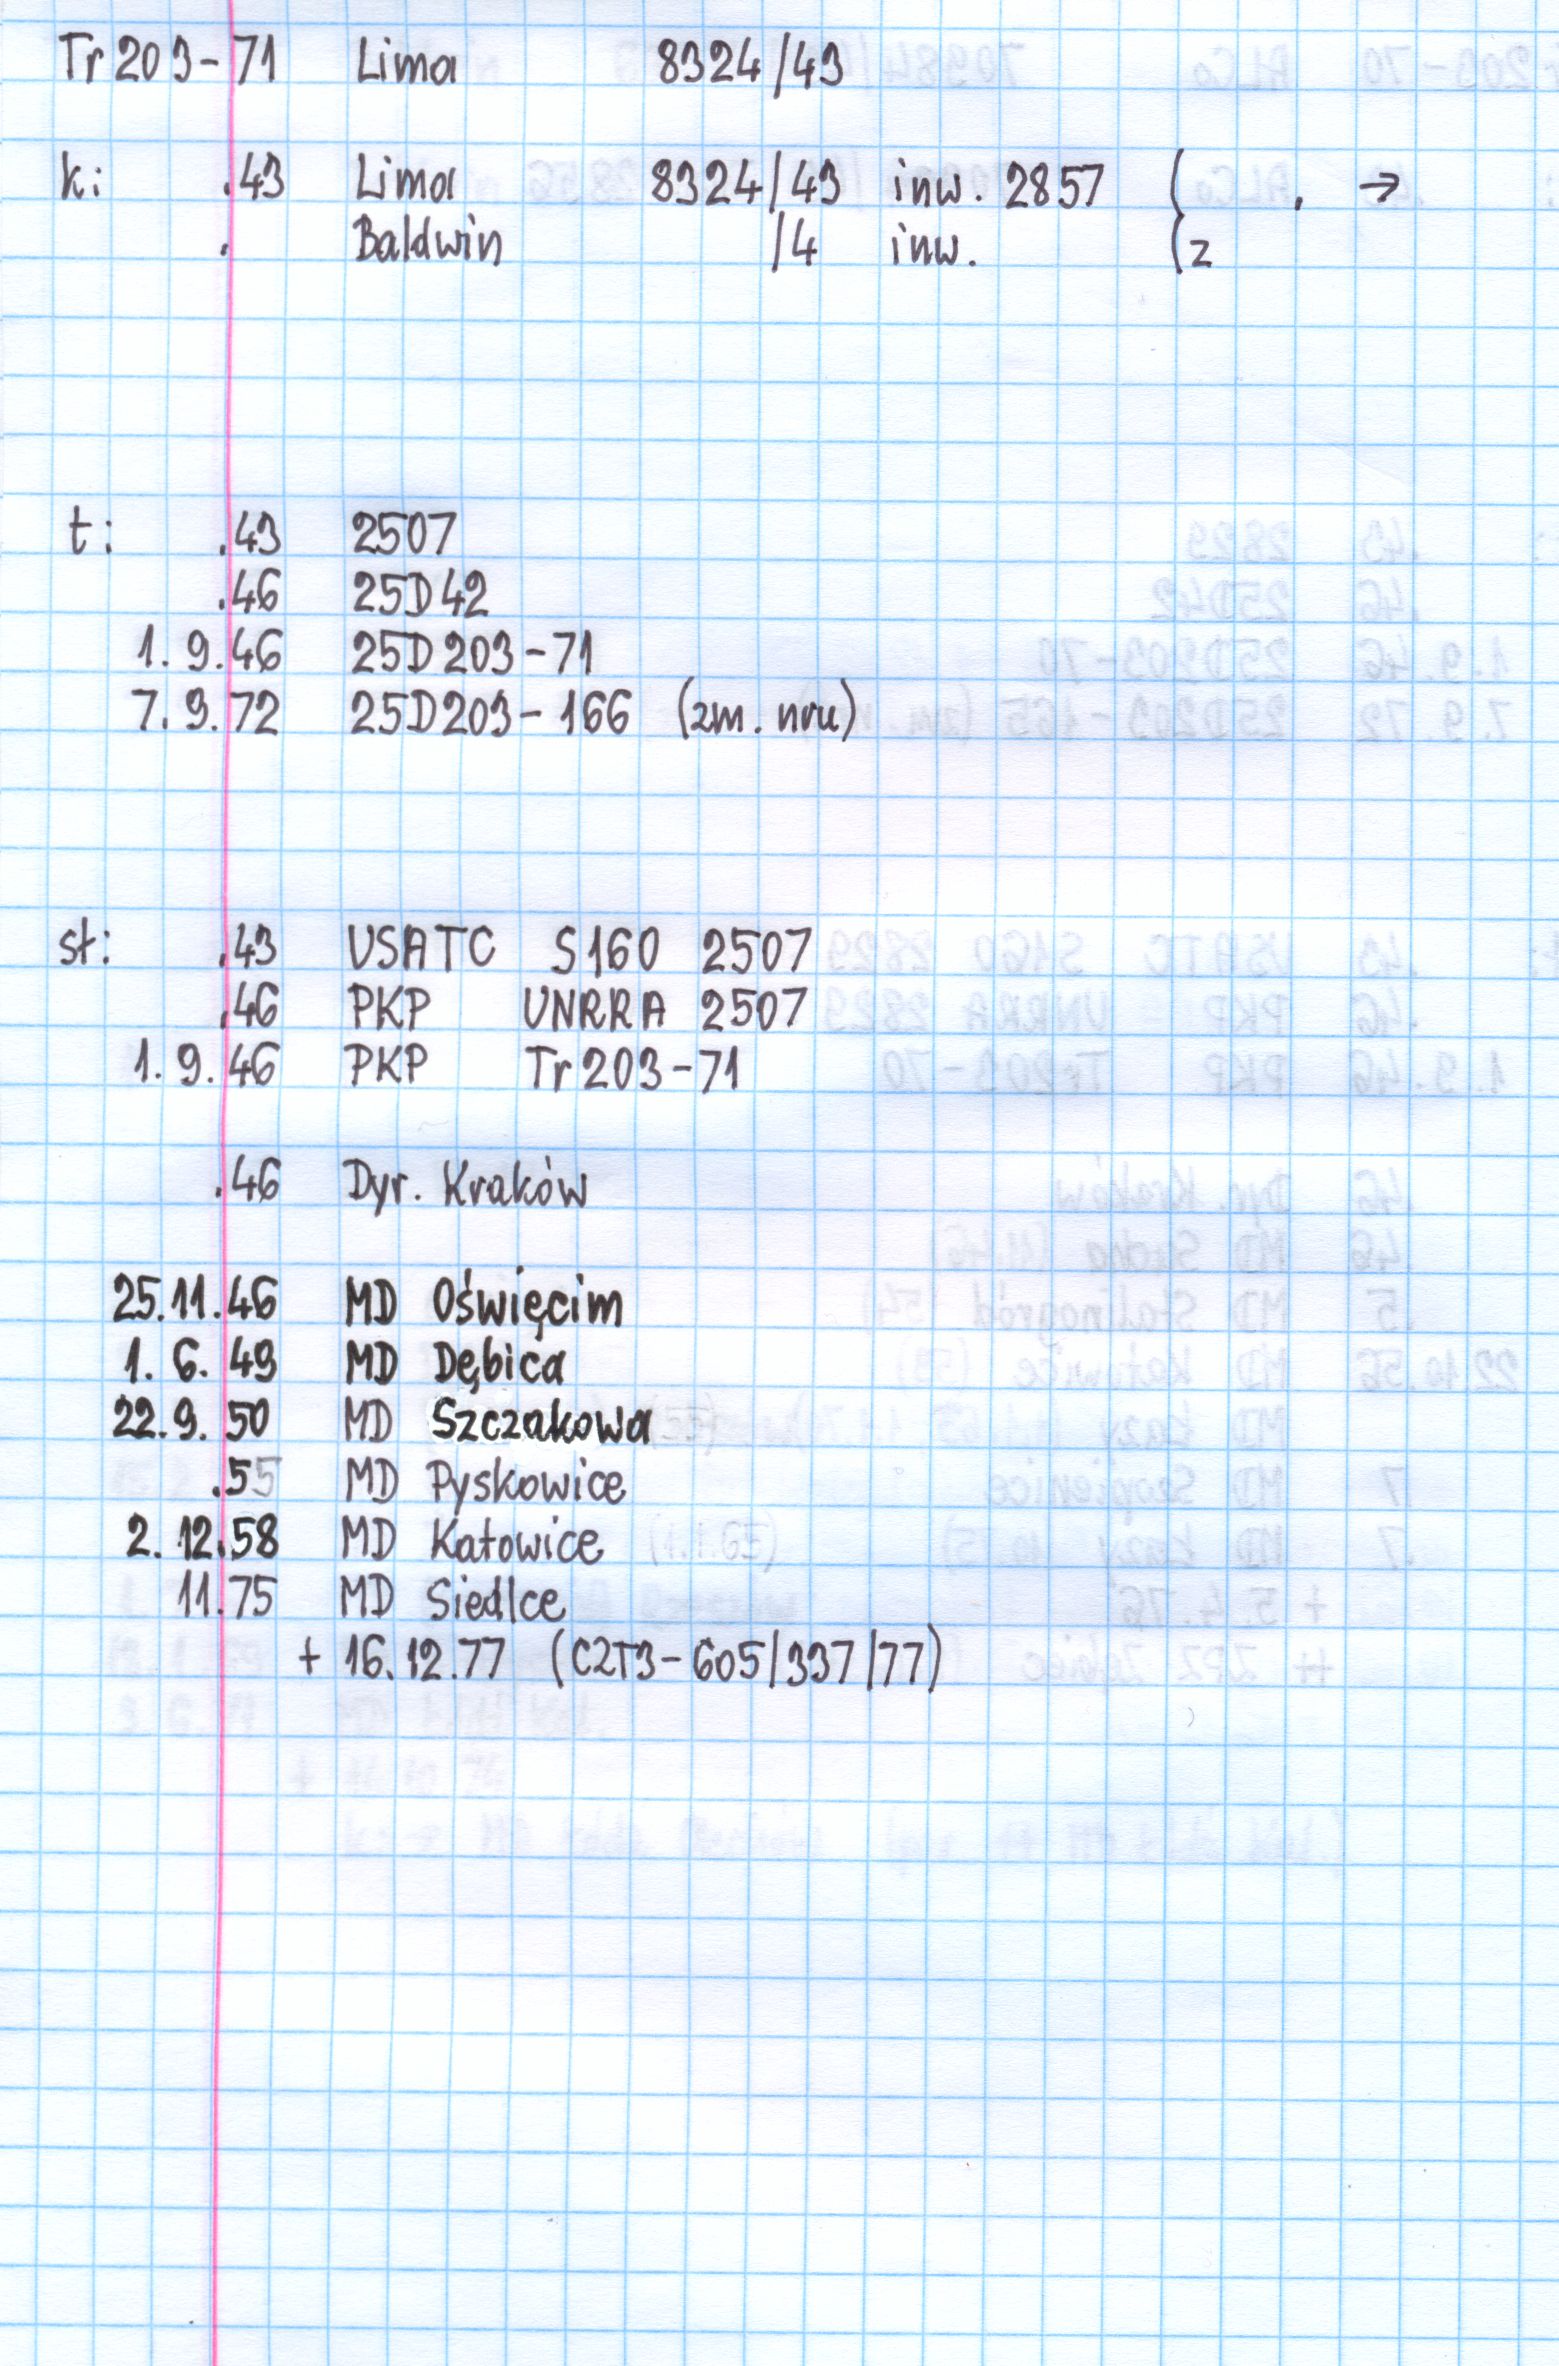 Tr 203-71 Lima 8324/43
k: .43 Lima 8324/43 inw. 2857 { . →
. Baldwin /4 inw. (z
t: .43 2507
.46 25D42
1.9.46 25D203-71
7.9.72 25D203-166 (zm. nru)
st: .43 USATC S160 2507
.46 PKP UNRRA 2507
1.9.46 PKP Tr203-71
.46 Dyr. Kraków
25.11.46 MD Oświęcim
1.6.49 MD Dębica
22.9.50 MD Szczakowa
.55 MD Pyskowice
2.12.58 MD Katowice
11.75 MD Siedlce
+ 16.12.77 (C2T3-605/337/77)